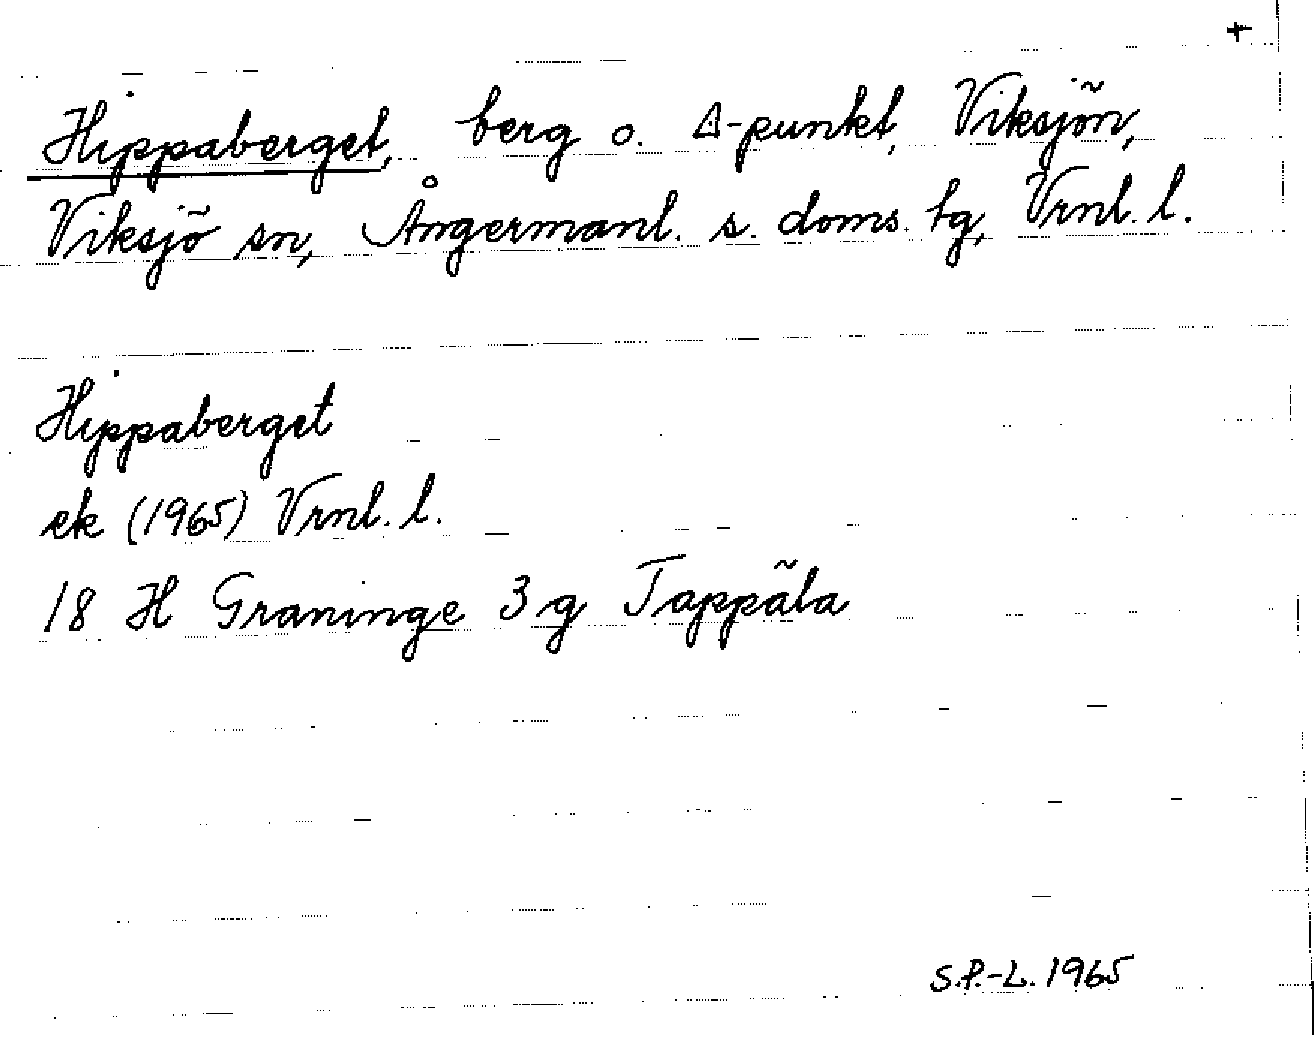 +
Hippaberget, berg o. Δ-punkt, Viksjön,
Viksjö sn, Ångermanl. s. doms. tg, Vrnl. l.
Hippaberget
ek (1965) Vrnl. l.
18 H Graninge 3 g Tappäla
S.P.-L. 1965